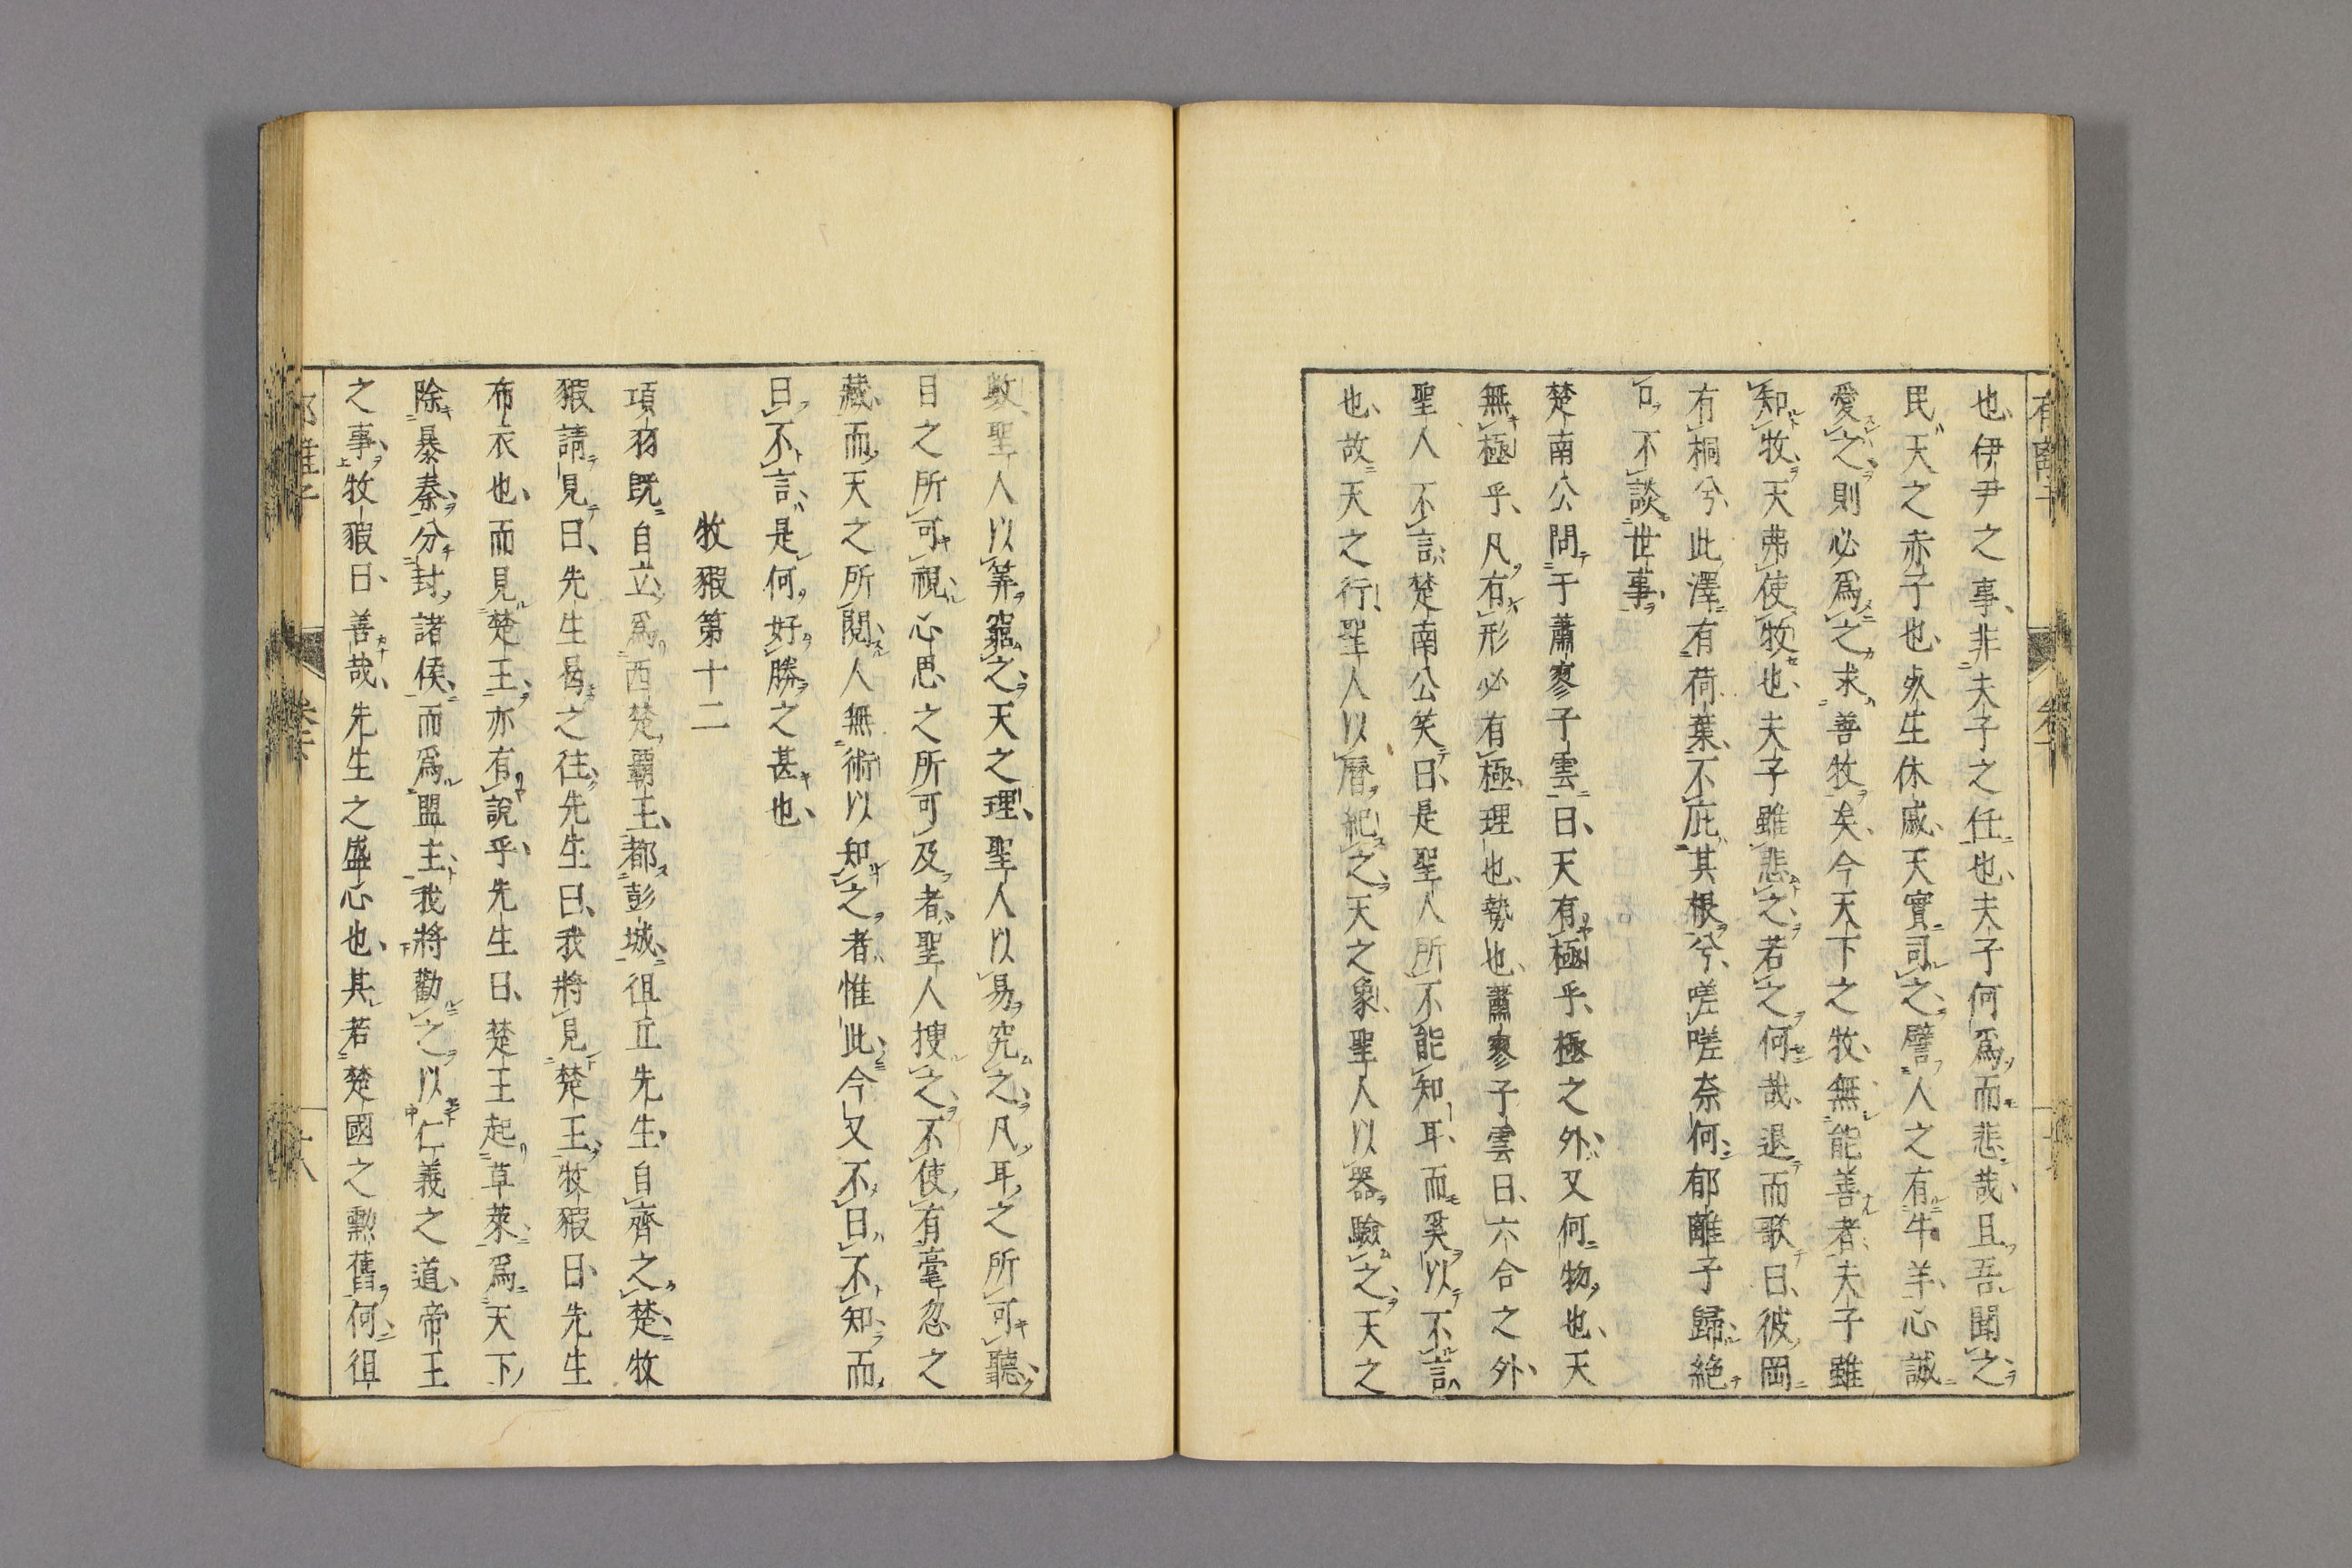 也伊尹之事非夫子之任也夫子何爲而悲哉且吾聞之
民天之赤子也夾生休戚天實司之譬人之有牛羊心誠
愛之則必爲之求善牧矣今天下之牧無能善者夫子雖
知牧天弗使牧也夫子雖悲之若之何哉退而歌曰彼岡
有桐兮此澤有荷葉不庇其根兮嗟嗟奈何郁離子歸絶
口不談世事
楚南公問于蕭寥子雲曰天有極乎極之外又何物也天
無極乎凡有形必有極理也勢也蕭寥子雲曰六合之外
聖人不言楚南公笑曰是聖人所不能知耳而奚以不言
也故天之行聖人以曆紀之天之象聖人以器驗之天之
數聖人以筭窮之天之理聖人以易究之凡耳之所可聽
目之所可視心思之所可及者聖人搜之不使有毫忽之
藏而天之所閟人無術以知之者惟此今又不曰不知而
曰不言是何好勝之甚也
牧豭第十二
項羽既自立爲西楚覇王都彭城徂丘先生自齊之楚牧
豭請見曰先生曷之往先生曰我將見楚王牧豭曰先生
布衣也而見楚王亦有說乎先生曰楚王起草萊爲天下
除暴秦分封諸侯而爲盟主我將勸之以仁義之道帝王
之事牧豭曰善哉先生之盛心也其若楚國之勲舊何徂